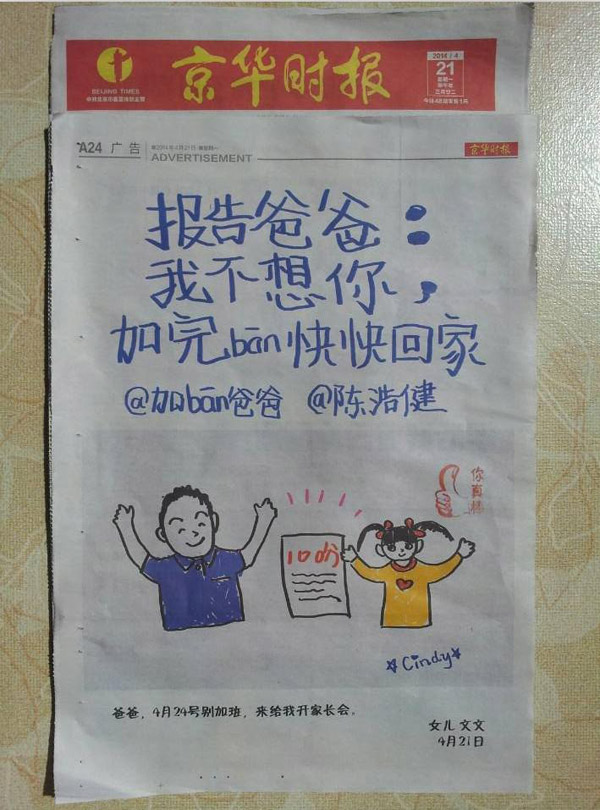 京华时报
BEIJING TIMES
2014 / 4
21
星期一
三月廿二
A24 广告
ADVERTISEMENT
京华时报
报告爸爸：
我不想你，
加完bān快快回家
@加bān爸爸 @陈浩健
你真棒
100分
*Cindy*
爸爸，4月24号别加班，来给我开家长会。
女儿 文文
4月21日